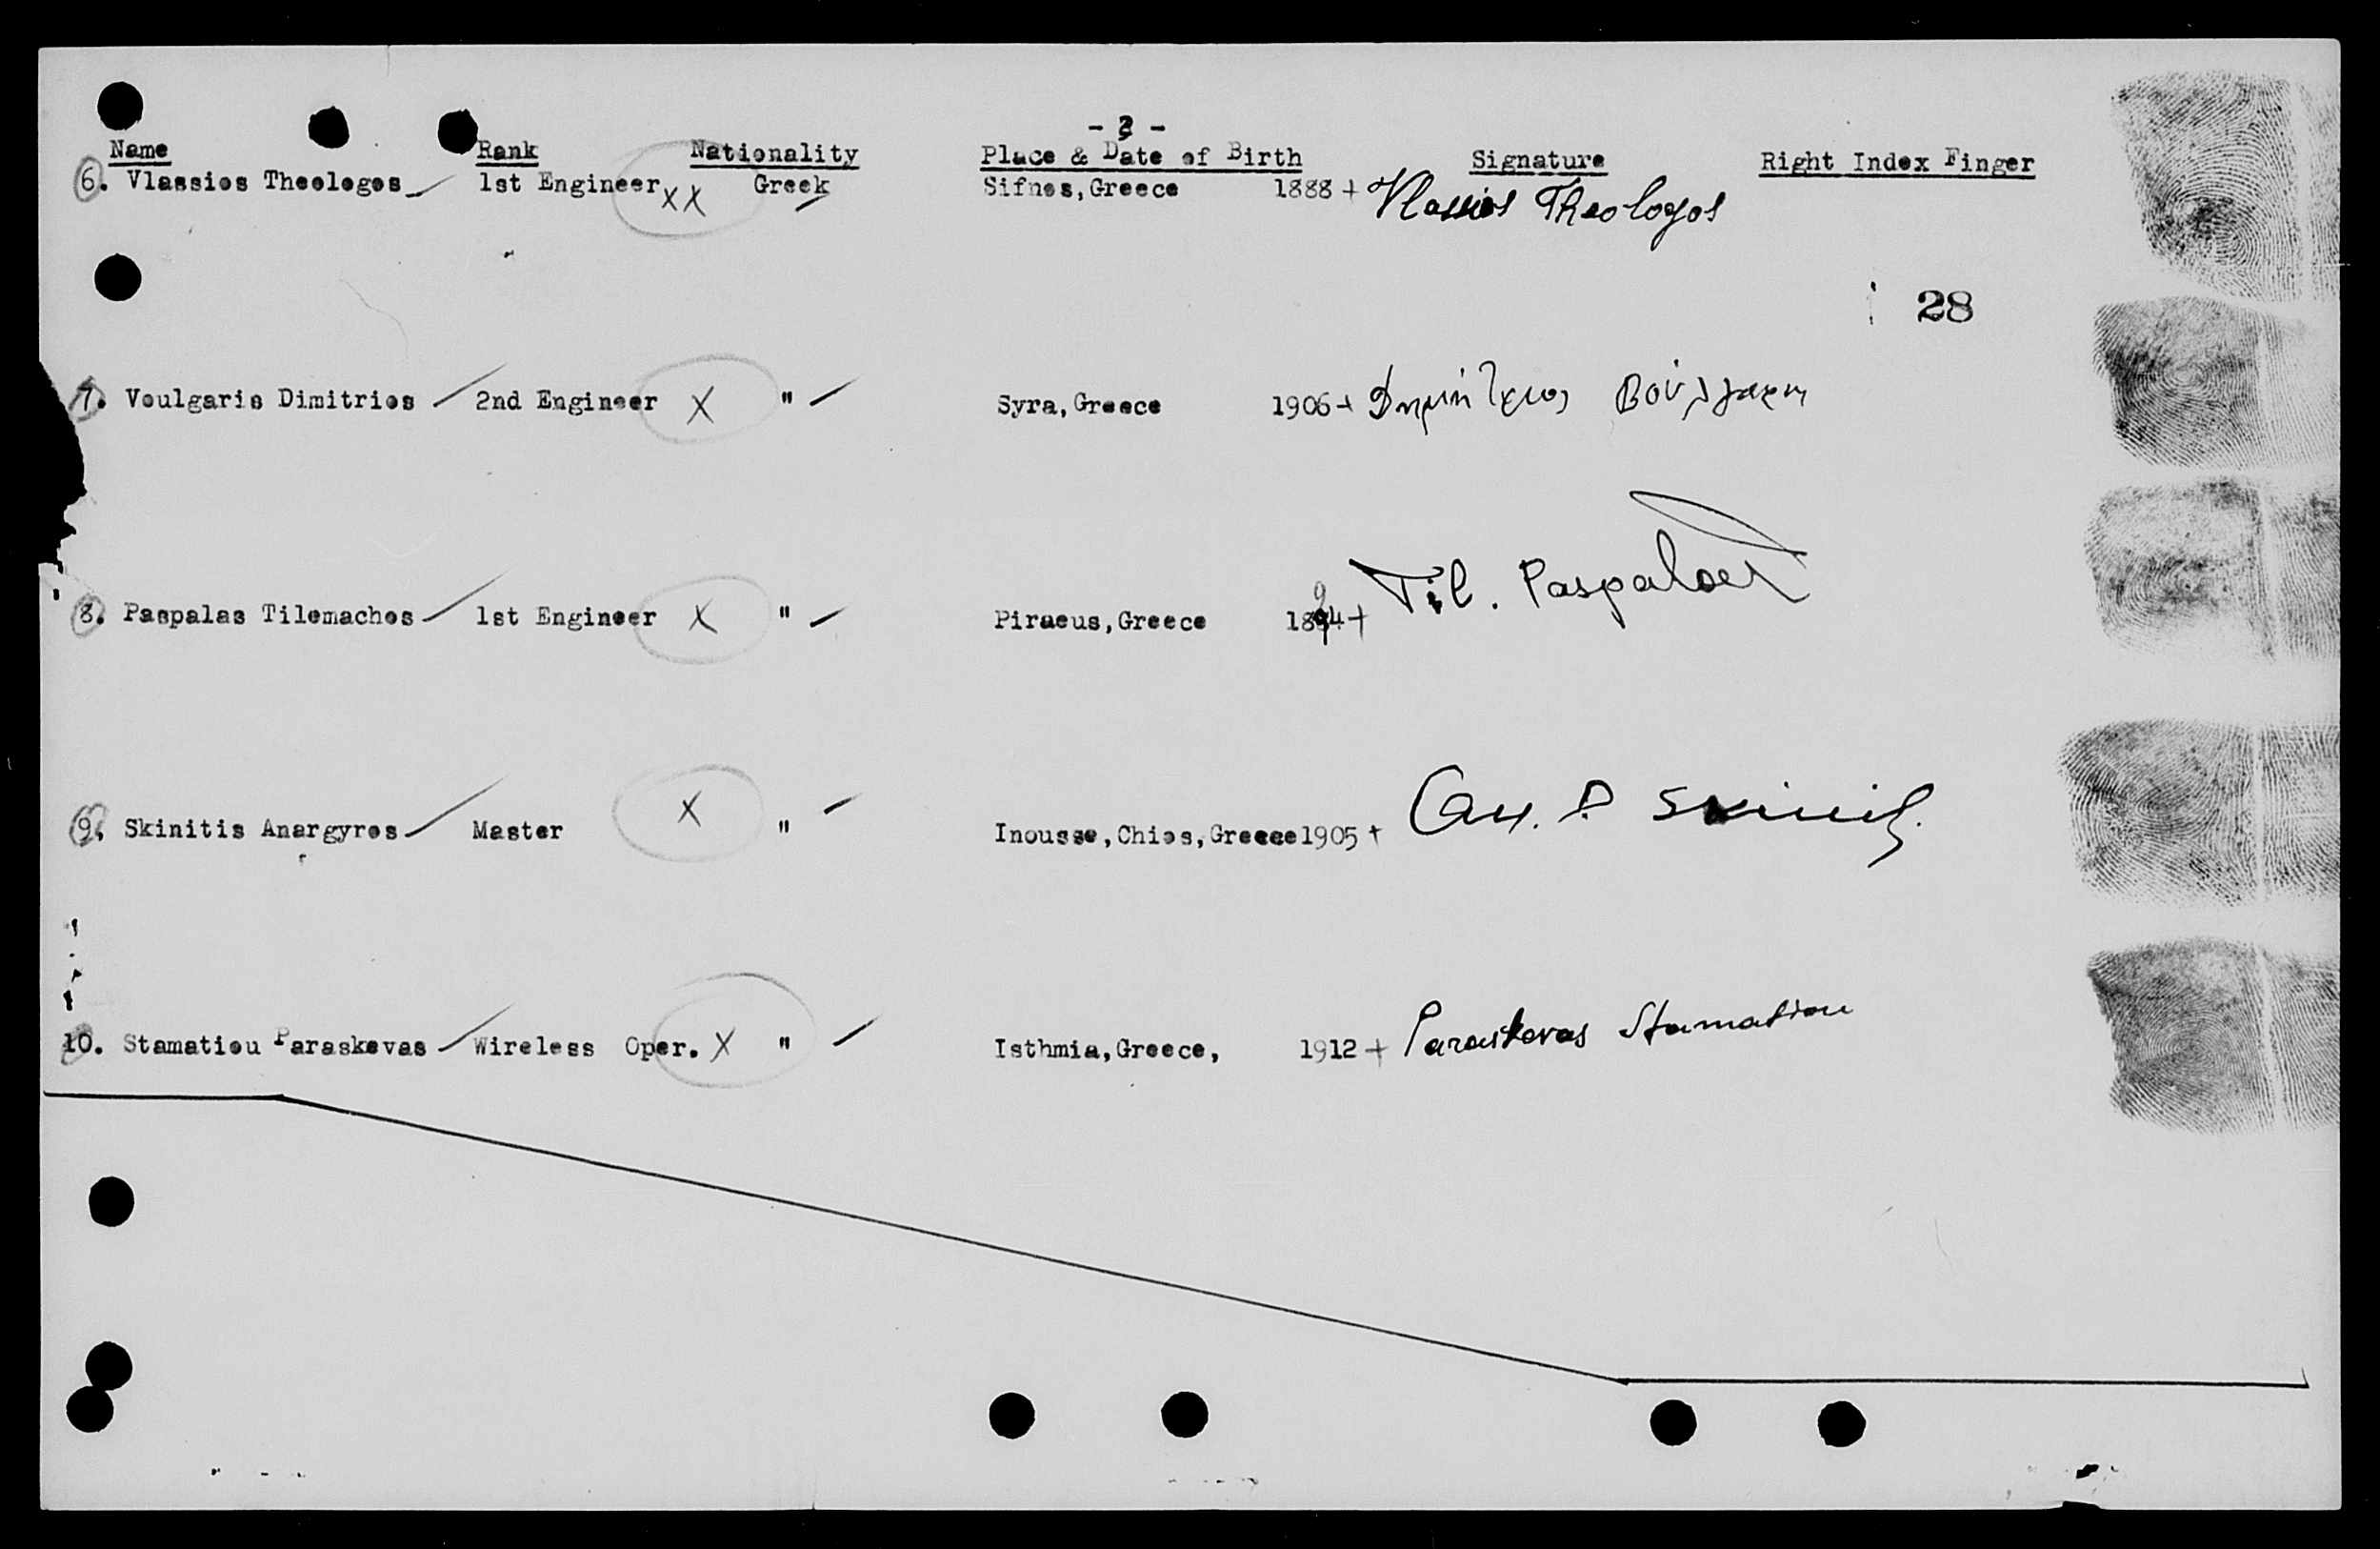 - 2 -
Name Rank Nationality Place & Date of Birth Signature Right Index Finger
6. Vlassios Theologos 1st Engineer XX Greek Sifnos, Greece 1888 + Vlassios Theologos
28
7. Voulgaris Dimitrios 2nd Engineer X " Syra, Greece 1906 + Δημήτριος Βούλγαρης
8. Paspalas Tilemachos 1st Engineer X " Piraeus, Greece 1894 + Til. Paspalas
9. Skinitis Anargyros Master X " Inousse, Chios, Greece 1905 +
10. Stamatiou Paraskevas Wireless Oper. X " Isthmia, Greece, 1912 + Paraskevas Stamatiou